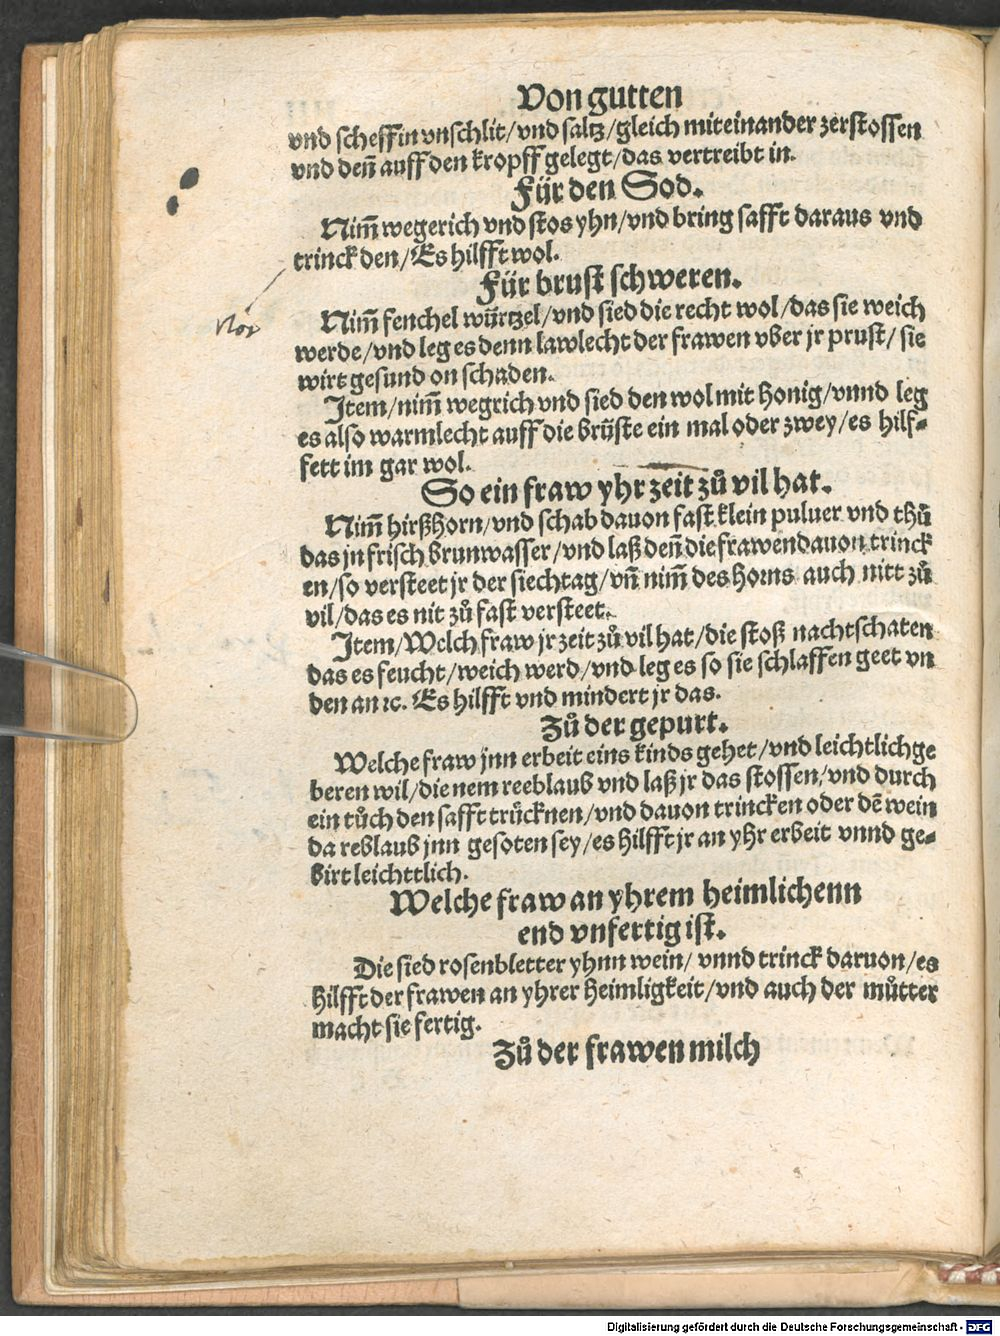 Von gutten
vnd scheffin vnschlit/vnd saltz/gleich miteinander zerstossen
vnd deñ auff den kropff gelegt/das vertreibt in.
Für den Sod.
Nim̃ wegerich vnd stos yhn/vnd bring safft daraus vnd
trinck den/Es hilfft wol.
Für brust schweren.
Nim̃ fenchel würtzel/vnd sied die recht wol/das sie weich
werde/vnd leg es denn lawlecht der frawen vber jr prust/sie
wirt gesund on schaden.
Item/nim̃ wegrich vnd sied den wol mit Honig/vnnd leg
es also warmlecht auff die brüste ein mal oder zwey/es hilf-
fett im gar wol.
So ein fraw yhr zeit zů vil hat.
Nim̃ hirßhorn/vnd schab dauon fast klein puluer vnd thů
das jn frisch brunwasser/vnd laß deñ die frawen dauon trinck
en/so versteet jr der siechtag/vñ nim̃ des Horns auch nitt zů
vil/das es nit zů fast versteet.
Item/Welch fraw jr zeit zů vil hat/die stoß nachtschaten
das es feucht/weich werd/vnd leg es so sie schlaffen geet vn
den an ꝛc. Es hilfft vnd mindert jr das.
Zů der gepurt.
Welche fraw jnn erbeit eins kinds gehet/vnd leichtlich ge
beren wil/die nem reeblaub vnd laß jr das stossen/vnd durch
ein tůch den safft trücknen/vnd dauon trincken oder dẽ wein
da reblaub jnn gesoten sey/es hilfft jr an yhr erbeit vnnd ge-
birt leichttlich.
Welche fraw an yhrem heimlichenn
end vnfertig ist.
Die sied rosenbletter yhnn wein/ vnnd trinck daruon/es
hilfft der frawen an yhrer Heimligkeit/vnd auch der můtter
macht sie fertig.
Zů der frawen milch
Digitalisierung gefördert durch die Deutsche Forschungsgemeinschaft - DFG